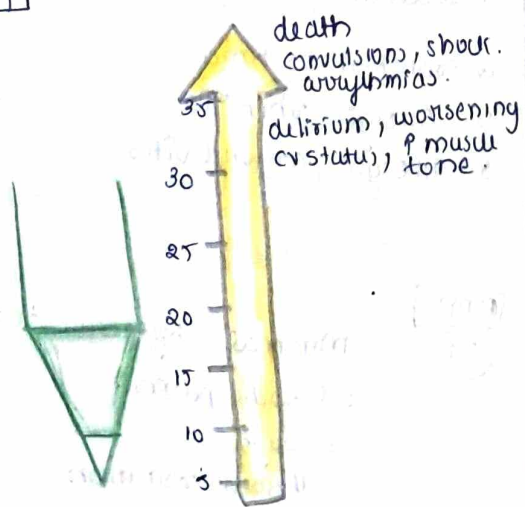 death
convulsions, shock.
arrythmias.
35
delirium, worsening
cv status, ↑ muscle
tone.
30
25
20
15
10
5